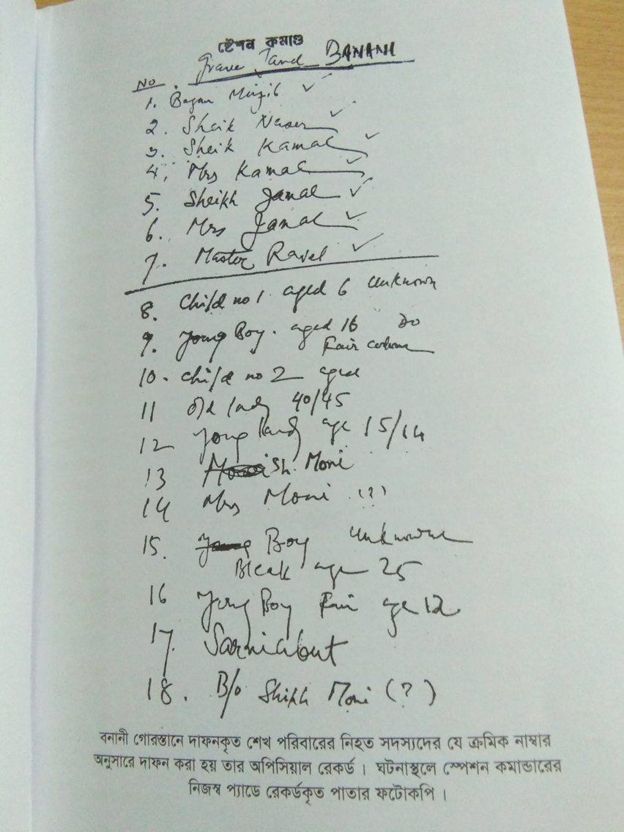 ষ্টেশন কমাণ্ড
Grave Yard BANANI
NO
1. Begum Mujib ✓
2. Sheik Naser ✓
3. Sheik Kamal ✓
4. Mrs Kamal ✓
5. Sheikh Jamal ✓
6. Mrs Jamal ✓
7. Master Rasel ✓
8. Child no 1 aged 6 unknown
9. Young Boy. aged 16 Do
Fair
10. child no 2 aged
11 old lady 40/45
12 Young lady age 15/14
13 Sh Moni
14 Mrs Moni (?)
15. Boy unknown
Bleak age 25
16 Young Boy Fair age 12
17. Sarniabut
18. B/o Shikh Moni (?)
বনানী গোরস্তানে দাফনকৃত শেখ পরিবারের নিহত সদস্যদের যে ক্রমিক নাম্বার
অনুসারে দাফন করা হয় তার অপিসিয়াল রেকর্ড। ঘটনাস্থলে স্পেশন কমান্ডারের
নিজস্ব প্যাডে রেকর্ডকৃত পাতার ফটোকপি।